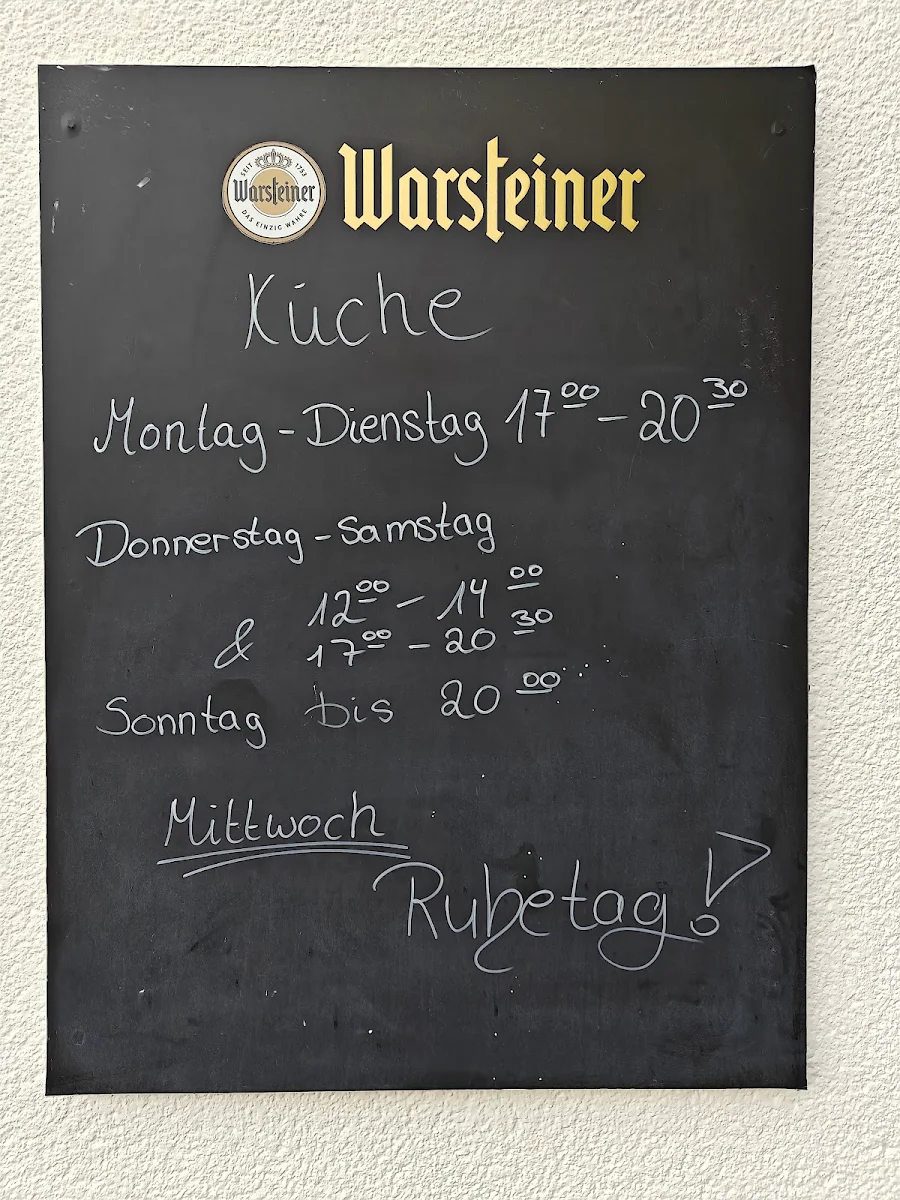 SEIT 1753
Warsteiner
DAS EINZIG WAHRE
Warsteiner
Küche
Montag - Dienstag 17⁰⁰ - 20³⁰
Donnerstag - Samstag
12⁰⁰ - 14⁰⁰
& 17⁰⁰ - 20³⁰
Sonntag bis 20⁰⁰
Mittwoch
Ruhetag!